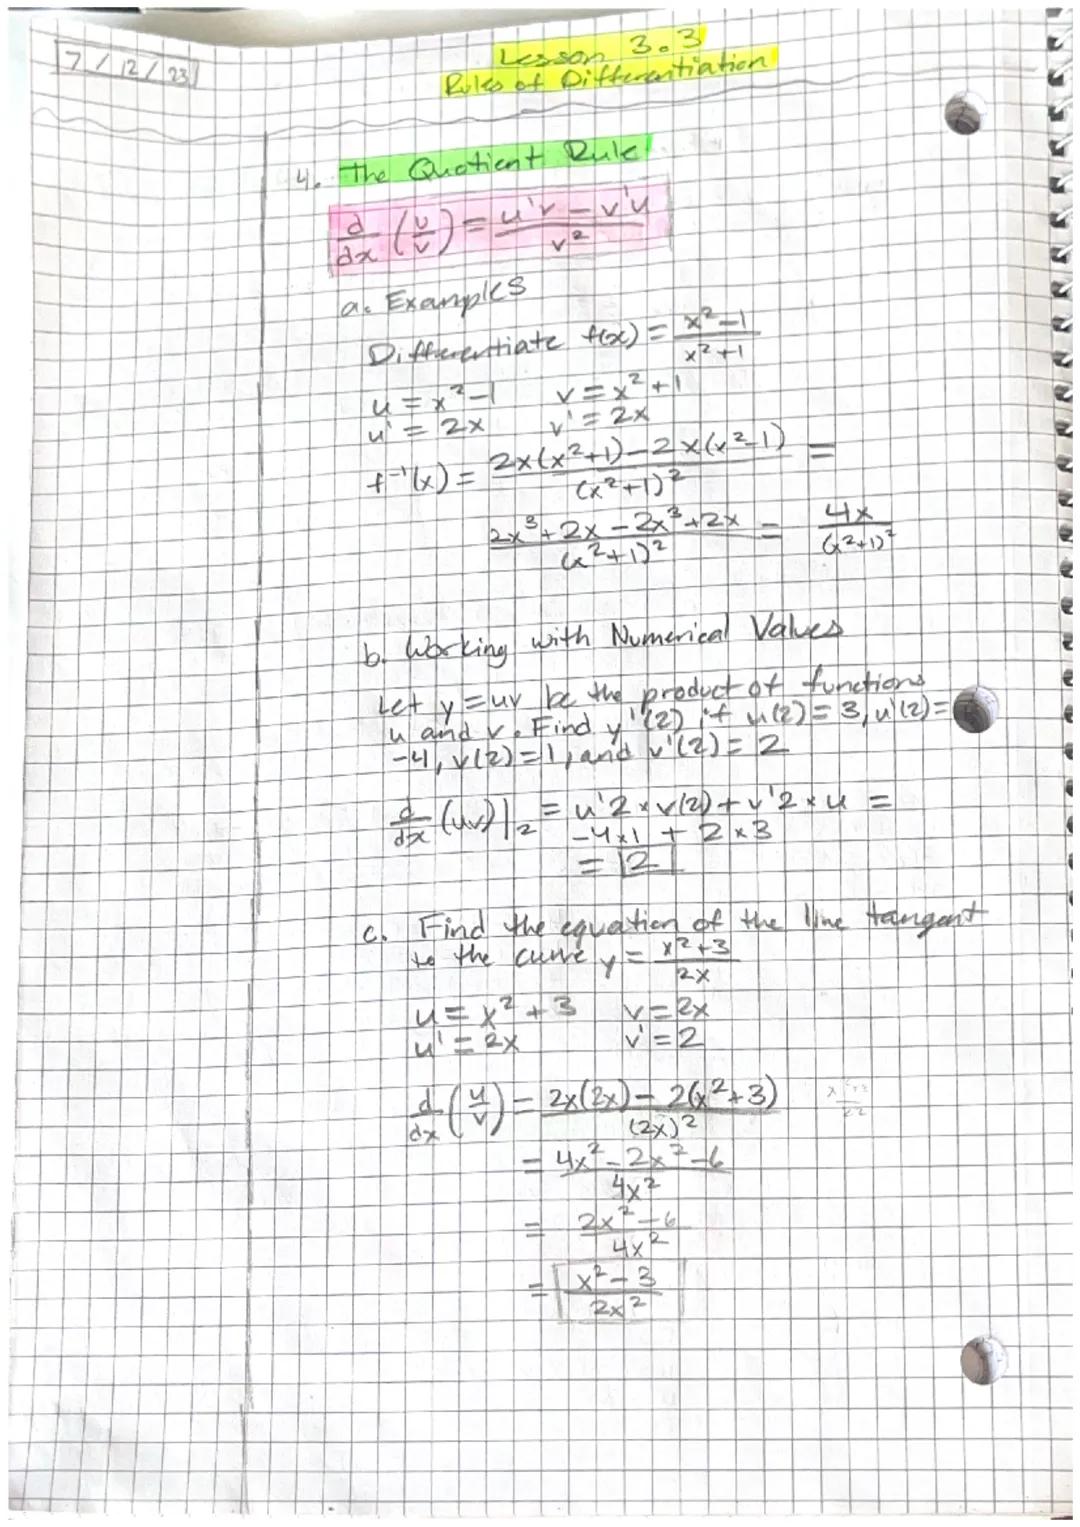 7/12/23
Lesson 3.3
Rules of Differentiation
4. The Quotient Rule
d/dx (u/v) = (u'v - v'u)/v²
a. Examples
Differentiate f(x) = (x²-1)/(x²+1)
u = x²-1   v = x²+1
u' = 2x   v' = 2x
f⁻¹(x) = (2x(x²+1)-2x(x²-1))/(x²+1)² =
(2x³+2x-2x³+2x)/(x²+1)² = 4x/(x²+1)²
b. Working with Numerical Values
Let y = uv be the product of functions
u and v. Find y'(2) if u(2)=3, u'(2)=
-4, v(2)=1, and v'(2)=2
d/dx (uv)|₂ = u'2 × v(2) + v'2 × u =
-4×1 + 2×3
= 2
c. Find the equation of the line tangent
to the curve y = (x²+3)/2x
u = x²+3   v = 2x
u' = 2x   v' = 2
d/dx (u/v) = (2x(2x) - 2(x²+3))/(2x)²
= (4x²-2x²-6)/4x²
= (2x²-6)/4x²
= (x²-3)/2x²